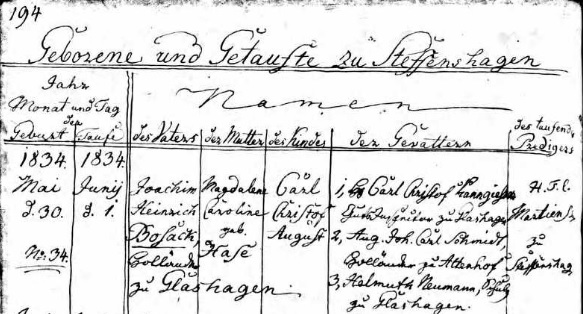 194
Geborene und Getaufte zu Steffenshagen
Jahr
Monat und Tag
der
Geburt Taufe
Namen
des Vaters
der Mutter
des Kindes
der Gevattern
des taufenden
Predigers
1834. 1834.
Mai Junij
d. 30. d. 1.
No. 34.
Joachim
Heinrich
Bosack,
Holländer
zu Glashagen.
Magdalene
Caroline
geb.
Hase
Carl
Christof
August
1, Carl Christof
zu Glashagen
2, Aug. Joh. Carl Schmidt,
Holländer zu Altenhof
3, Helmuth Neumann, Schulz
zu Glashagen.
H. F. C.
Martiens
zu
Steffenshag